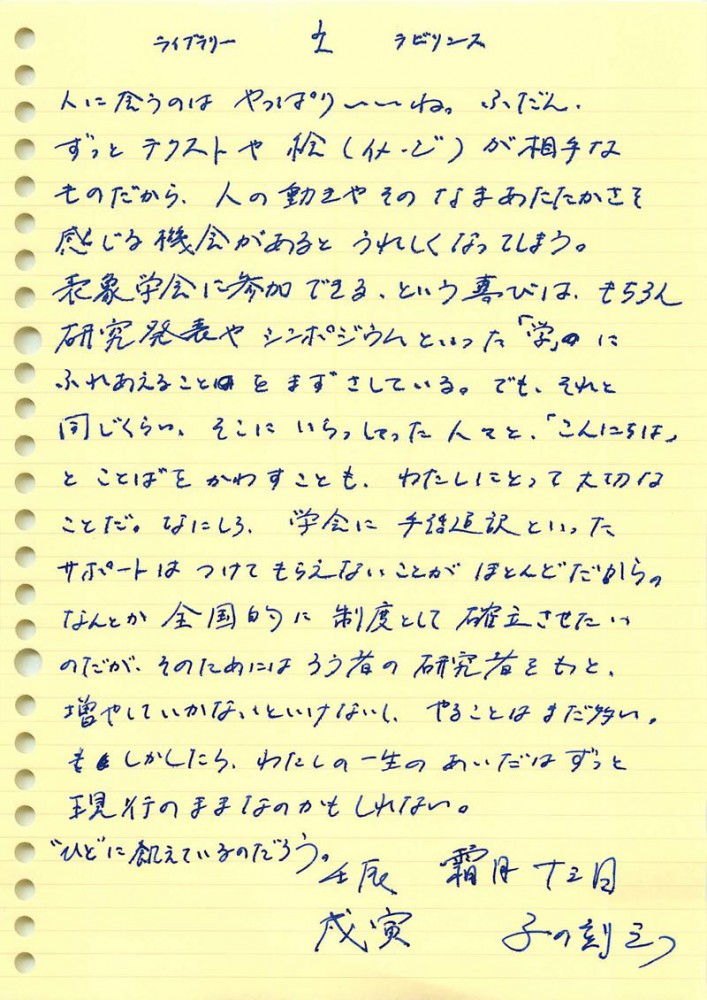 ライブラリー と ラビリンス
人に会うのは やっぱりいいね。ふだん、
ずっと テクストや 絵(イメージ)が相手な
ものだから、人の動きやその なまあたたかさを
感じる機会があると うれしくなってしまう。
表象学会に参加できる、という喜びは、もちろん
研究発表や シンポジウムといった「学」に
ふれあえることをまずさしている。でも、それと
同じくらい、そこに いらっしゃった人々と、「こんにちは」
と ことばを かわすことも、わたしにとって大切な
ことだ。なにしろ、学会に 手話通訳といった
サポートは つけて もらえないことが ほとんどだから。
なんとか 全国的に 制度として 確立させたい
のだが、そのためには ろう者の研究者をもっと、
増やしていかないといけないし、やることは まだ多い。
もしかしたら、わたしの一生の あいだは ずっと
現行のままなのかもしれない。
"ひと"に飢えているのだろう。
壬辰 霜月 十三日
戊寅 子の刻三つ